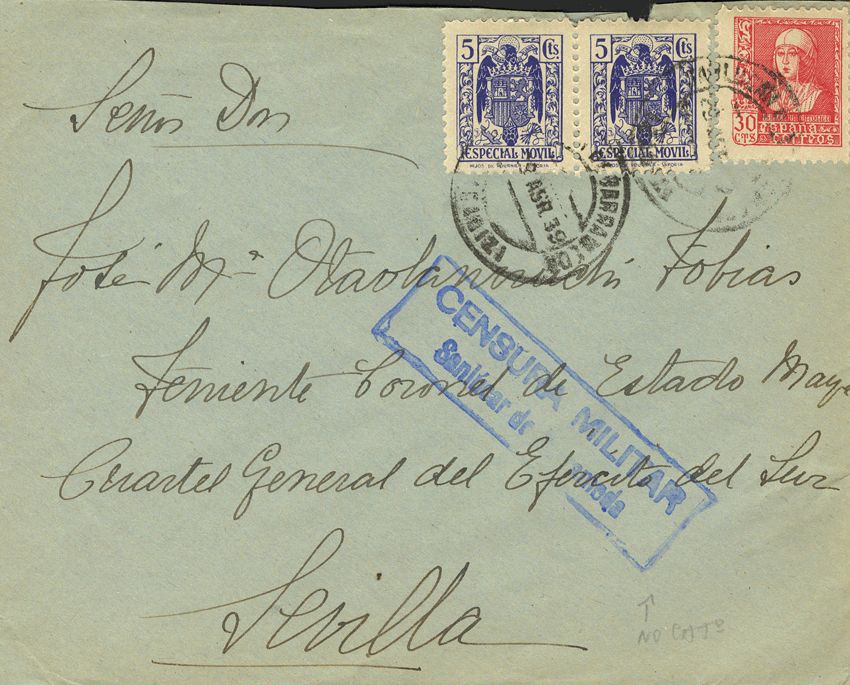 5 Cts 5 Cts
ESPECIAL MOVIL ESPECIAL MOVIL
30
CTS España
Correos
ABR. 39
Señor Don
José Mª Olaolaurruchi Tobias
Teniente Coronel de Estado Mayo
Cuartel General del Ejercito del Sur
Sevilla
CENSURA MILITAR
Sanlúcar de
NO CATº